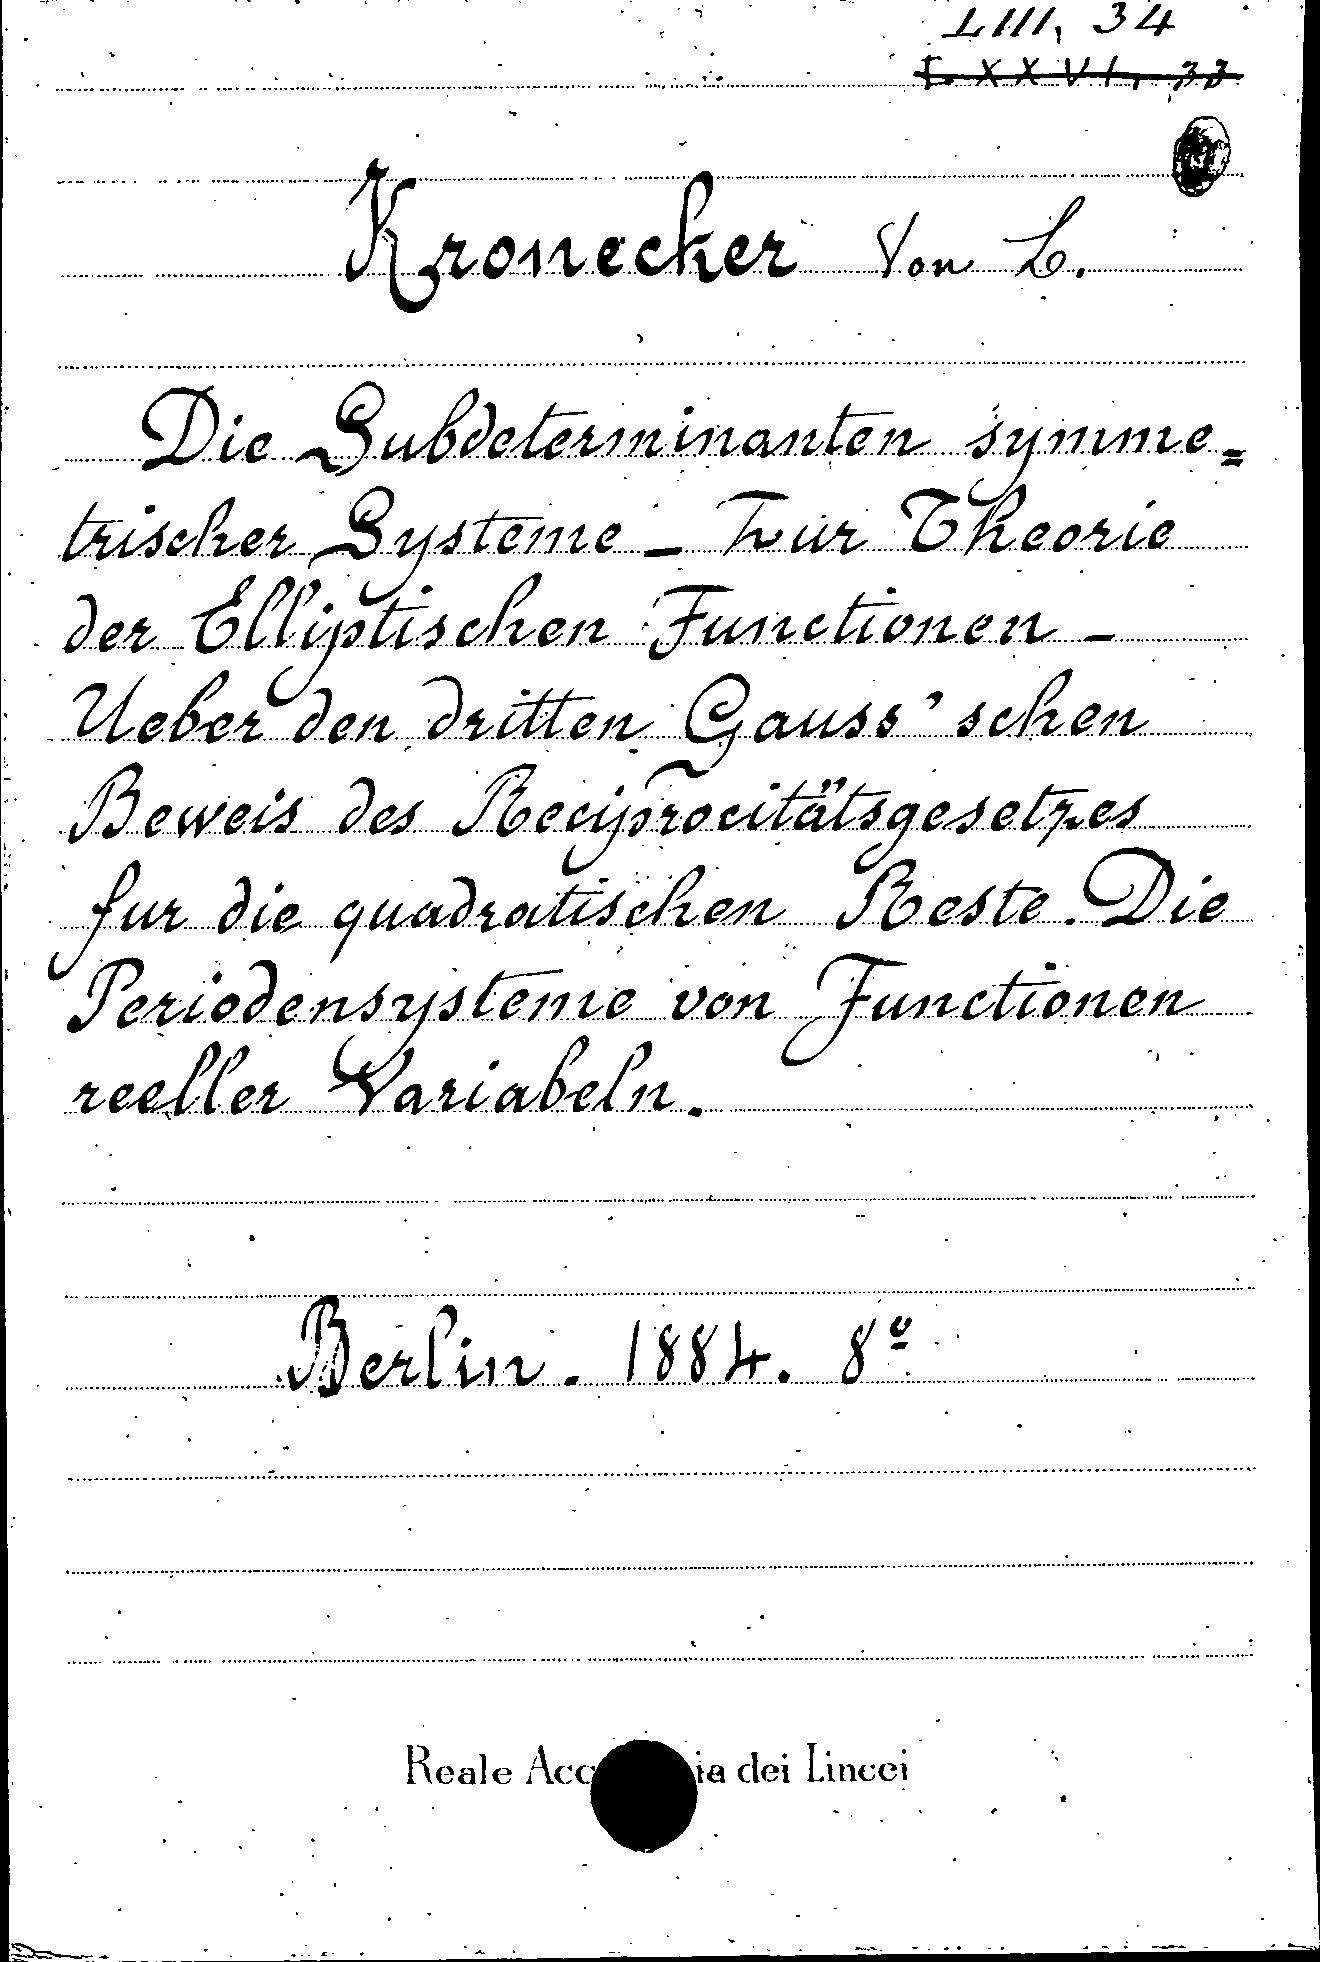 LIII, 34
L. XXVI, 33
Kronecker Von L.
Die Subdeterminanten symme=
trischer Systeme – Zur Theorie
der Elliptischen Functionen –
Ueber den dritten Gauss'schen
Beweis des Reciprocitätsgesetzes
fur die quadratischen Reste. Die
Periodensysteme von Functionen
reeller Variabeln.
Berlin. 1884. 8º
Reale Acc ia dei Lincei